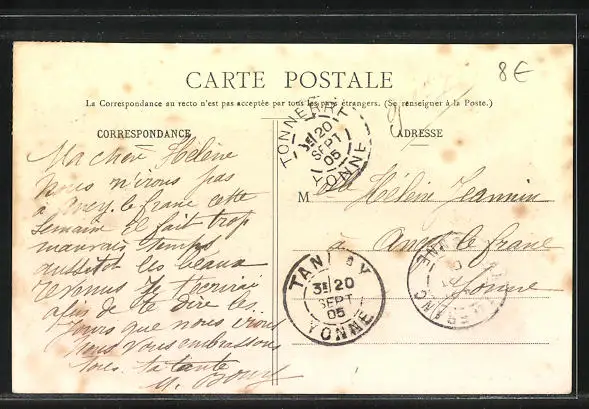 8€
CARTE POSTALE
La Correspondance au recto n'est pas acceptée par tous les pays étrangers. (Se renseigner à la Poste.)
CORRESPONDANCE
ADRESSE
Ma chère Hélène
nous n'irons pas
à Ancy-le-franc cette
semaine il fait trop
mauvais temps
aussitôt les beaux
revenus je t'écrirai
afin de te dire les
jours que nous irons
nous vous embrassons
tous. ta tante
M
Hélène Jeannin
à Ancy le franc
Yonne
TONNERRE
3E 20
SEPT
05
YONNE
TANLAY
3E 20
SEPT
05
YONNE